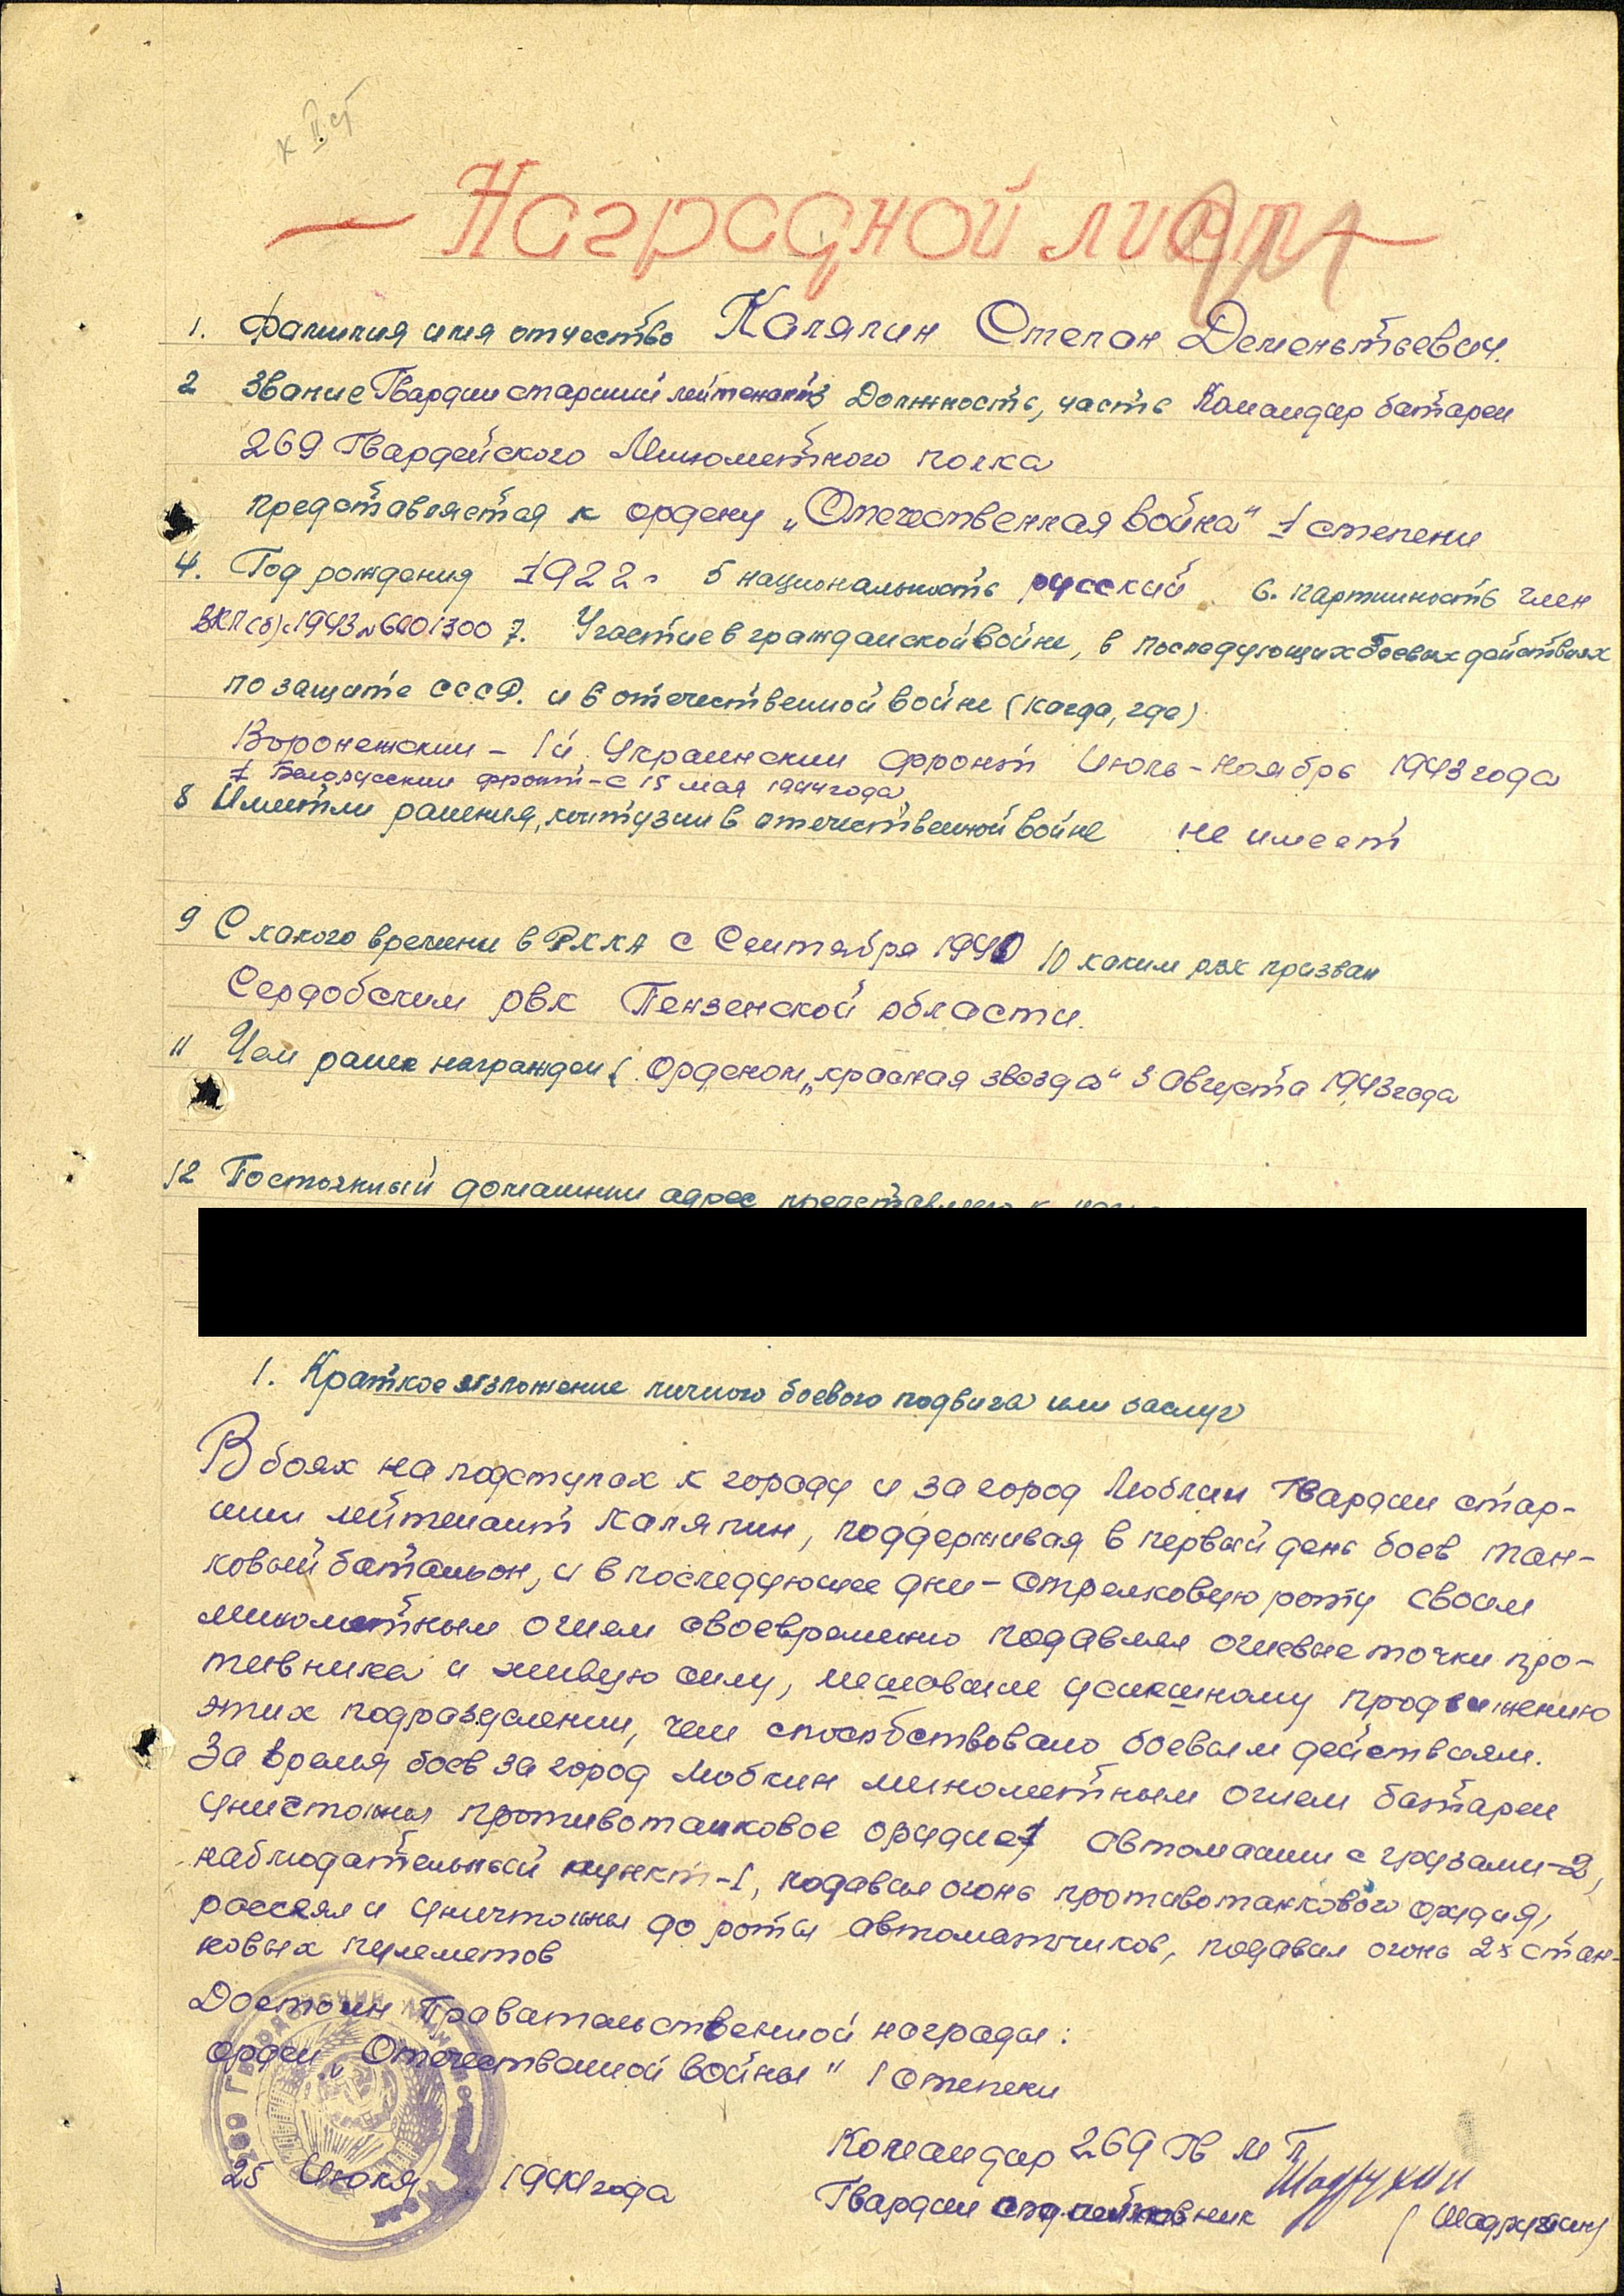 к II ст
Наградной лист
1. Фамилия имя отчество Каляпин Степан Дементьевич.
2 Звание Гвардии старший лейтенант 3 Должность, часть Командир батареи
269 Гвардейского Минометного полка
представляется к ордену „Отечественная война" 1 степени
4. Год рождения 1922г. 5 национальность русский 6. партийность член
ВКП(б) с 1943 № 6001300 7. Участие в гражданской войне, в последующих боевых действиях
по защите СССР. и в отечественной войне (когда, где)
Воронежский – 1й Украинский фронт Июль – Ноябрь 1943 года
1 Белорусский фронт – с 15 мая 1944 года
8 Имеет ли ранения, контузии в отечественной войне не имеет
9 С какого времени в РККА с Сентября 1940 10 каким рвк призван
Сердобским рвк Пензенской области.
11 Чем ранее награжден Орденом „красная звезда" 3 Августа 1943 года
12 Постоянный домашний адрес
1. Краткое изложение личного боевого подвига или заслуг
В боях на подступах к городу и за город Люблин Гвардии стар-
ший лейтенант Каляпин, поддерживая в первый день боев тан-
ковый батальон, и в последующие дни – стрелковую роту своим
минометным огнем своевременно подавлял огневые точки про-
тивника и живую силу, мешавшие успешному продвижению
этих подразделении, чем способствовало боевым действиям.
За время боев за город Люблин минометным огнем батареи
уничтожил противотанковое орудие 1 автомашин с грузами – 2,
наблюдательный пункт – 1, подавил огонь противотанкового орудия,
рассеял и уничтожил до роты автоматчиков, подавил огонь 2х стан-
ковых пулеметов
Достоин Правительственной награды:
орден „Отечественной войны" 1 степени
Командир 269 Гв М П
25 Июля 1944 года
Гвардии подполковник